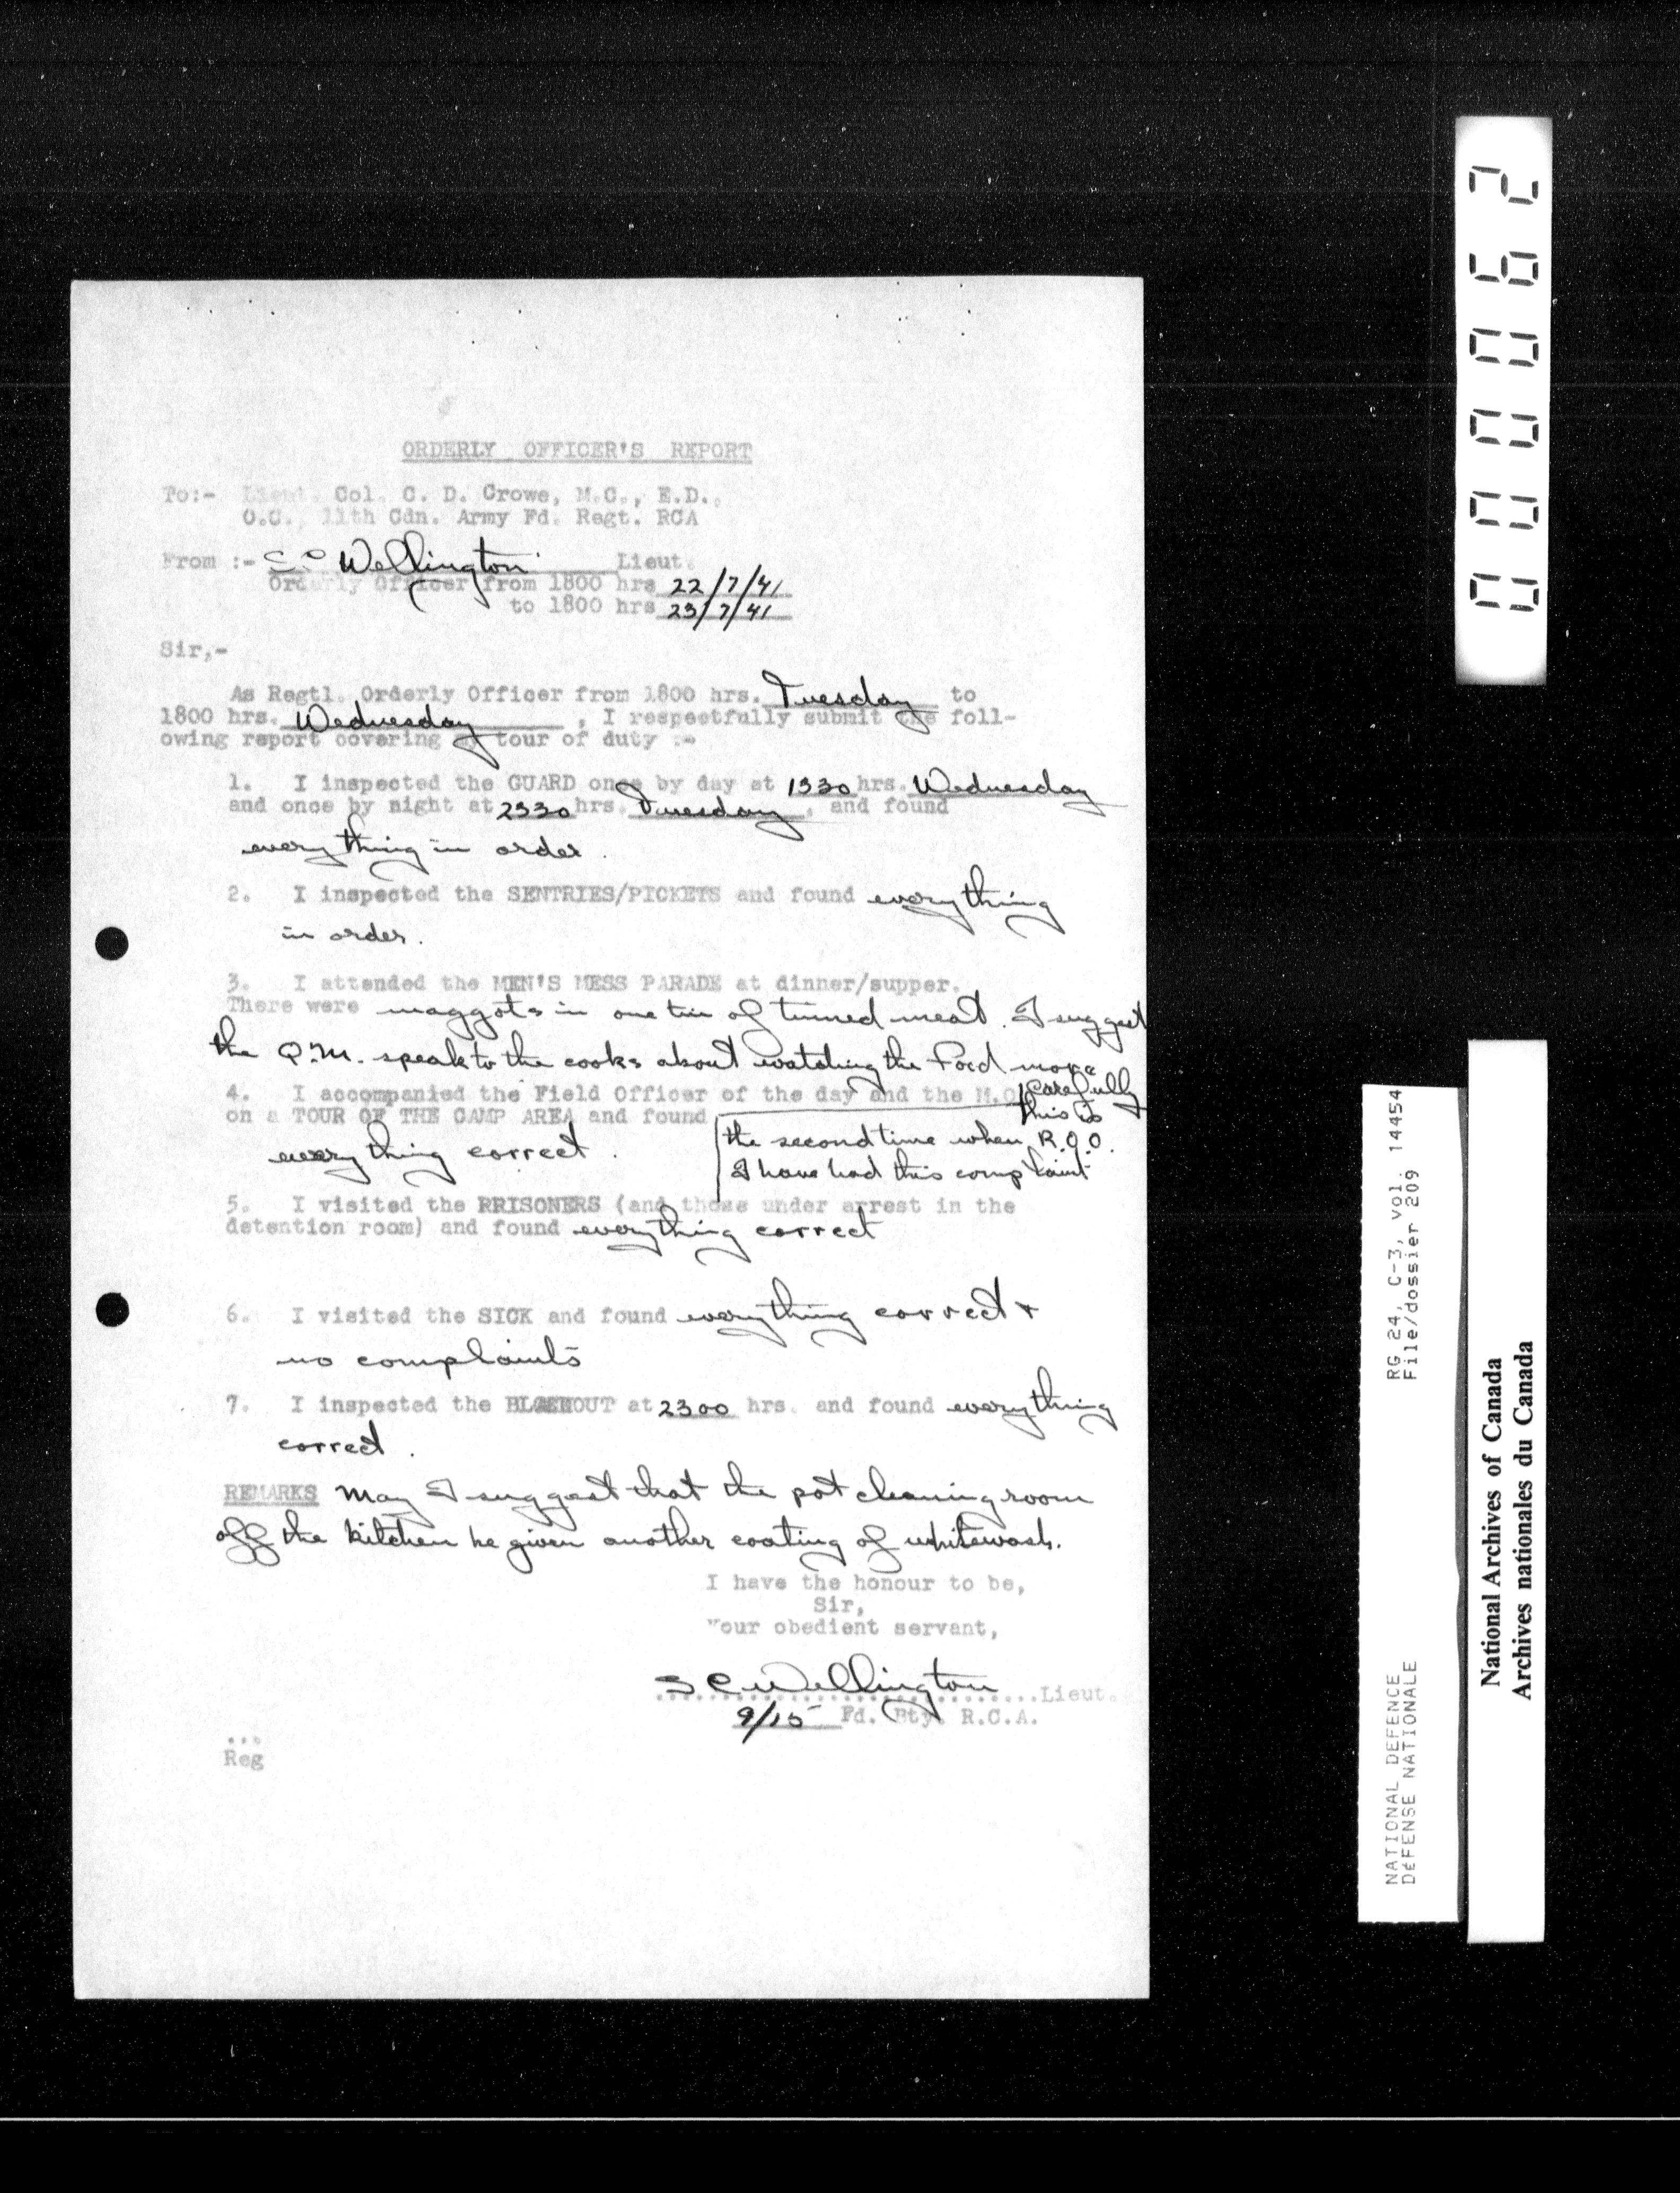 ORDERLY OFFICER'S REPORT
To:- Lieut. Col. C. D. Crowe, M.C., E.D.,
O.C., 11th Cdn. Army Fd. Regt. RCA
From :- S C Wellington Lieut.
Orderly Officer from 1800 hrs 22/7/41
to 1800 hrs 23/7/41
Sir,-
As Regtl. Orderly Officer from 1800 hrs. Tuesday to
1800 hrs. Wednesday , I respectfully submit the foll-
owing report covering my tour of duty :-
1. I inspected the GUARD once by day at 1330 hrs. Wednesday
and once by night at 2330 hrs. Tuesday, and found
everything in order.
2. I inspected the SENTRIES/PICKETS and found everything
in order.
3. I attended the MEN'S MESS PARADE at dinner/supper.
There were maggots in one tin of tinned meat. I suggest
the Q.M. speak to the cooks about watching the food more
carefully
this is
the second time when R.O.O.
I have had this complaint
4. I accompanied the Field Officer of the day and the M.O.
on a TOUR OF THE CAMP AREA and found
everything correct.
5. I visited the PRISONERS (and those under arrest in the
detention room) and found everything correct
6. I visited the SICK and found everything correct +
no complaints
7. I inspected the BLACKOUT at 2300 hrs. and found everything
correct.
REMARKS May I suggest that the pot cleaning room
off the kitchen be given another coating of whitewash.
I have the honour to be,
Sir,
Your obedient servant,
S C Wellington
..............................Lieut.
9/15 Fd. Bty. R.C.A.
...
Reg
000062
RG 24, C-3, vol. 14454
File/dossier 209
NATIONAL DEFENCE
DéFENSE NATIONALE
National Archives of Canada
Archives nationales du Canada